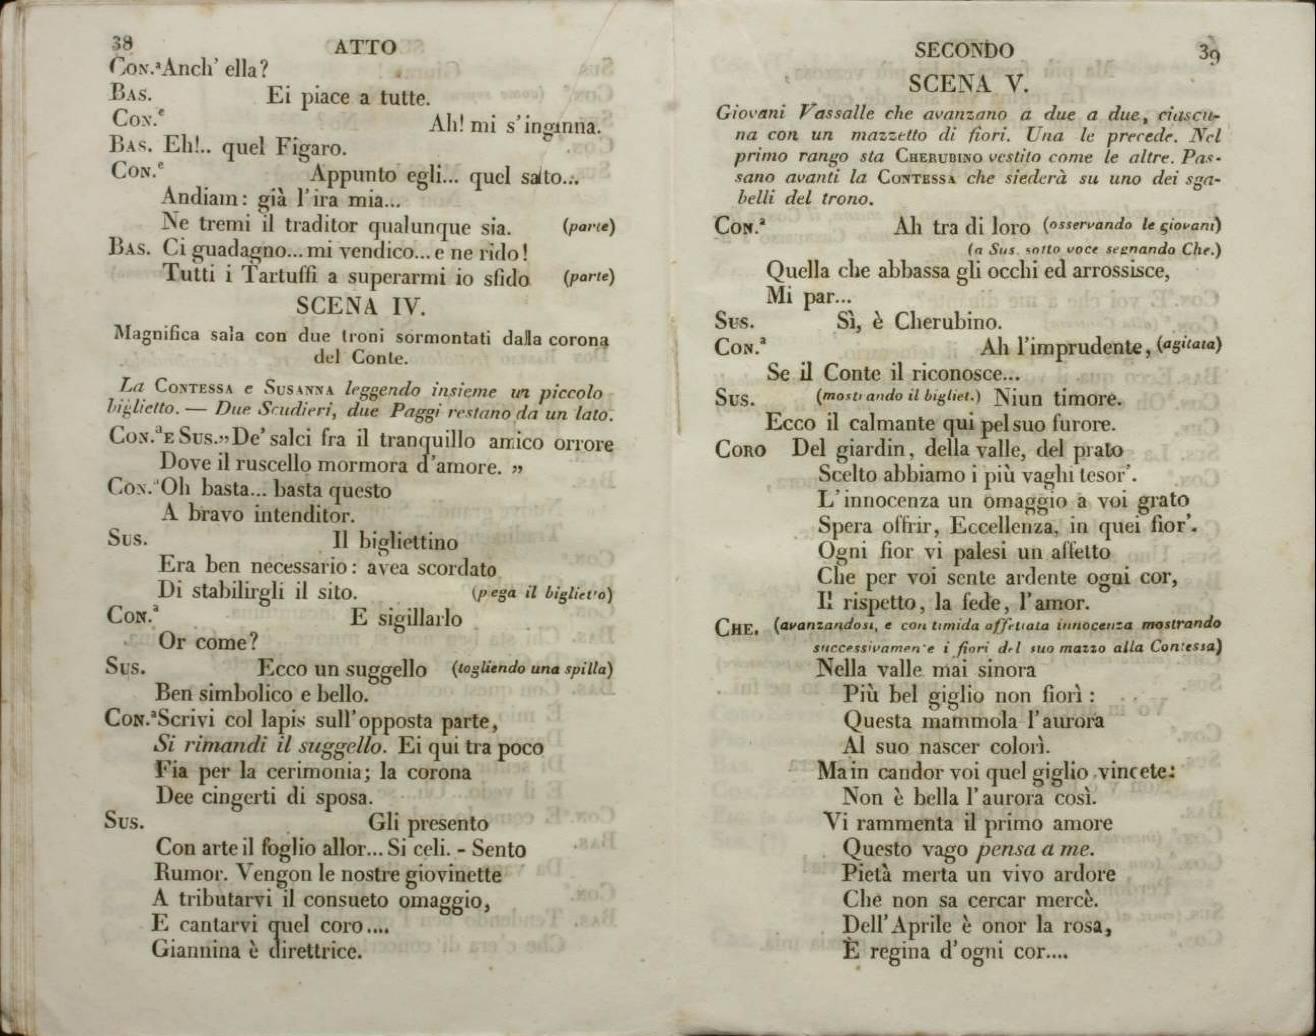 38
ATTO
Con.ª Anch' ella?
Bas. Ei piace a tutte.
Con.e Ah! mi s'inganna.
Bas. Eh!.. quel Figaro.
Con.e Appunto egli... quel salto...
Andiam: già l'ira mia...
Ne tremi il traditor qualunque sia. (parte)
Bas. Ci guadagno... mi vendico... e ne rido!
Tutti i Tartuffi a superarmi io sfido (parte)
SCENA IV.
Magnifica sala con due troni sormontati dalla corona
del Conte.
La Contessa e Susanna leggendo insieme un piccolo
biglietto. — Due Scudieri, due Paggi restano da un lato.
Con.ª e Sus. „ De' salci fra il tranquillo amico orrore
Dove il ruscello mormora d'amore. „
Con.ª Oh basta... basta questo
A bravo intenditor.
Sus. Il bigliettino
Era ben necessario: avea scordato
Di stabilirgli il sito. (piega il biglietto)
Con.ª E sigillarlo
Or come?
Sus. Ecco un suggello (togliendo una spilla)
Ben simbolico e bello.
Con.ª Scrivi col lapis sull'opposta parte,
Si rimandi il suggello. Ei qui tra poco
Fia per la cerimonia; la corona
Dee cingerti di sposa.
Sus. Gli presento
Con arte il foglio allor... Si celi. - Sento
Rumor. Vengon le nostre giovinette
A tributarvi il consueto omaggio,
E cantarvi quel coro....
Giannina è direttrice.
SECONDO
39
SCENA V.
Giovani Vassalle che avanzano a due a due, ciascu-
na con un mazzetto di fiori. Una le precede. Nel
primo rango sta Cherubino vestito come le altre. Pas-
sano avanti la Contessa che siederà su uno dei sga-
belli del trono.
Con.ª Ah tra di loro (osservando le giovani)
(a Sus. sotto voce segnando Che.)
Quella che abbassa gli occhi ed arrossisce,
Mi par...
Sus. Sì, è Cherubino.
Con.ª Ah l'imprudente, (agitata)
Se il Conte il riconosce...
Sus. (mostrando il bigliet.) Niun timore.
Ecco il calmante qui pel suo furore.
Coro Del giardin, della valle, del prato
Scelto abbiamo i più vaghi tesor'.
L'innocenza un omaggio a voi grato
Spera offrir, Eccellenza, in quei fior'.
Ogni fior vi palesi un affetto
Che per voi sente ardente ogni cor,
Il rispetto, la fede, l'amor.
Che. (avanzandosi, e con timida affettata innocenza mostrando
successivamente i fiori del suo mazzo alla Contessa)
Nella valle mai sinora
Più bel giglio non fiorì:
Questa mammola l'aurora
Al suo nascer colorì.
Ma in candor voi quel giglio vincete:
Non è bella l'aurora così.
Vi rammenta il primo amore
Questo vago pensa a me.
Pietà merta un vivo ardore
Che non sa cercar mercè.
Dell'Aprile è onor la rosa,
È regina d'ogni cor....